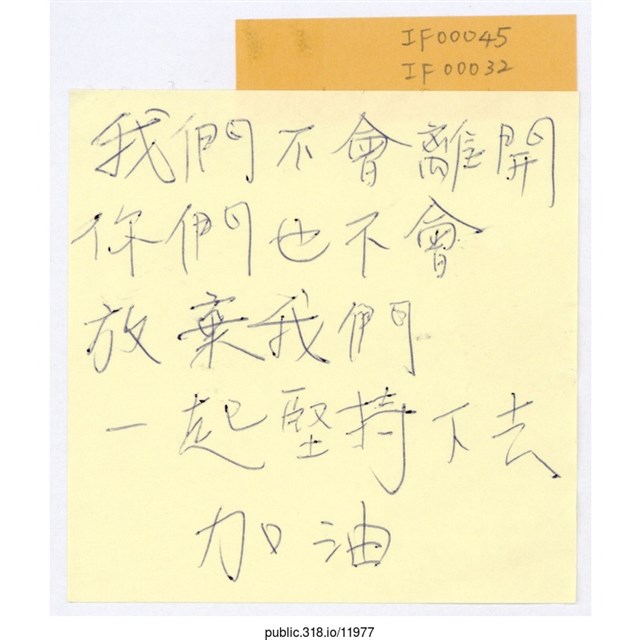 IF00045
IF00032
我們不會離開
你們也不會
放棄我們
一起堅持下去
加油
public.318.io/11977